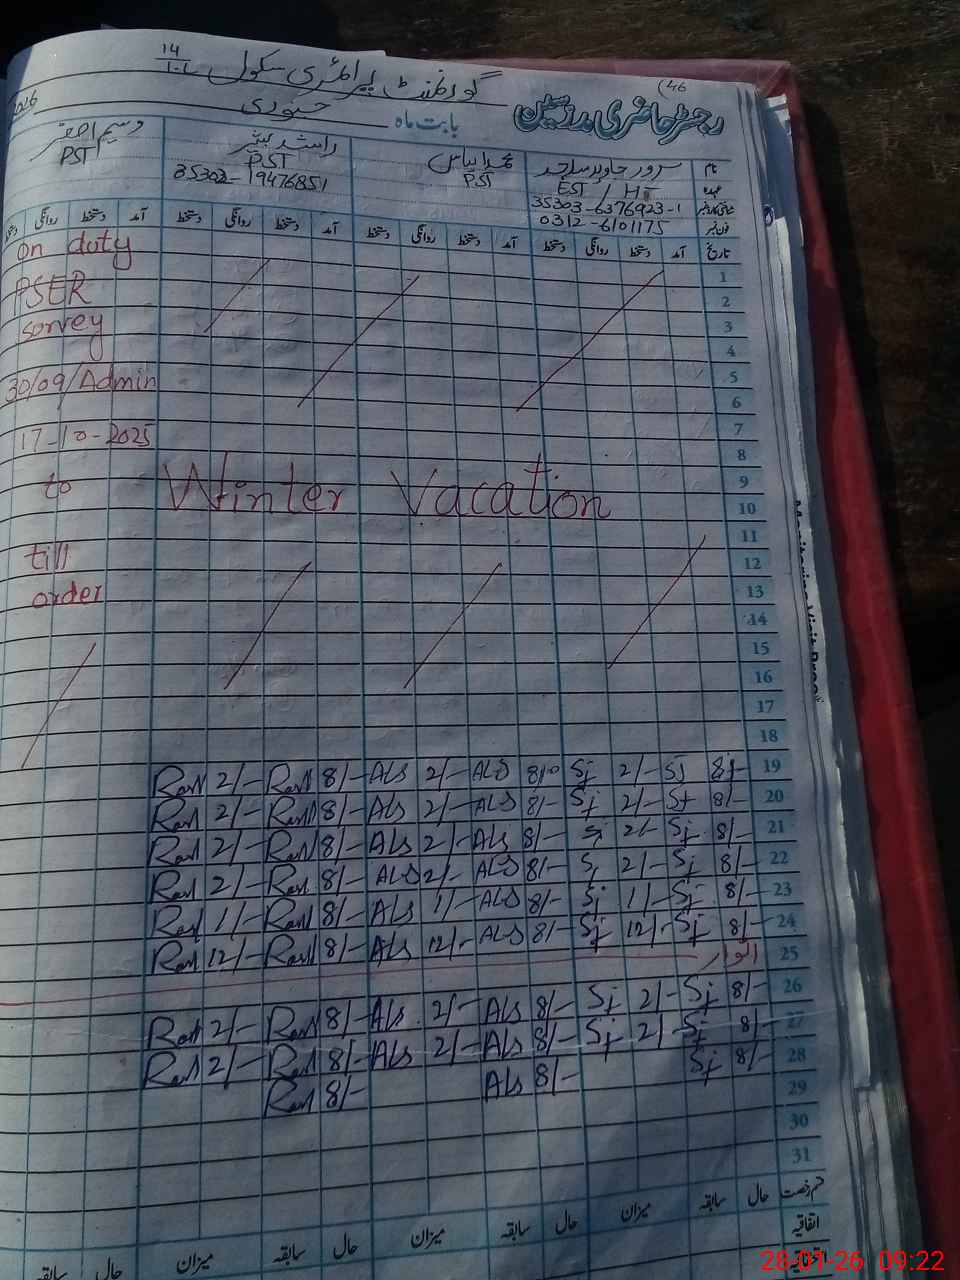 گورنمنٹ پرائمری سکول 14/1-L
(46
رجسٹر حاضری مدرسین
بابت ماہ جنوری 2026
نام
سرور جاوید ساجد
محمد الیاس
راشد بشیر
وسیم اصغر
عہدہ
EST / HT
PST
PST
PST
شناختی کارڈ نمبر
35303-6376923-1
35302-19476851
فون نمبر
0312-6101175
تاریخ آمد دستخط روانگی دستخط آمد دستخط روانگی دستخط آمد دستخط روانگی دستخط آمد دستخط روانگی دستخط
on duty
PSER
survey
30/09/Admin
17-10-2025
to
till
order
Winter Vacation
1
2
3
4
5
6
7
8
9
10
11
12
13
14
15
16
17
18
19 8/- Sj 2/- Sj 8/- ALS 2/- ALS 8/- Rash 2/- Rash
20 8/- Sj 2/- Sj 8/- ALS 2/- ALS 8/- Rash 2/- Rash
21 8/- Sj 2/- Sj 8/- ALS 2/- ALS 8/- Rash 2/- Rash
22 8/- Sj 2/- Sj 8/- ALS 2/- ALS 8/- Rash 2/- Rash
23 8/- Sj 1/- Sj 8/- ALS 1/- ALS 8/- Rash 1/- Rash
24 8/- Sj 12/- Sj 8/- ALS 12/- ALS 8/- Rash 12/- Rash
25 اتوار
26 8/- Sj 2/- Sj 8/- ALS 2/- ALS 8/- Rash 2/- Rash
27 8/- Sj 2/- Sj 8/- ALS 2/- ALS 8/- Rash 2/- Rash
28 8/- Sj 8/- ALS 8/- Rash
29
30
31
قسم رخصت حال سابقہ میزان حال سابقہ میزان حال سابقہ میزان حال سابقہ
اتفاقیہ
28-01-26 09:22